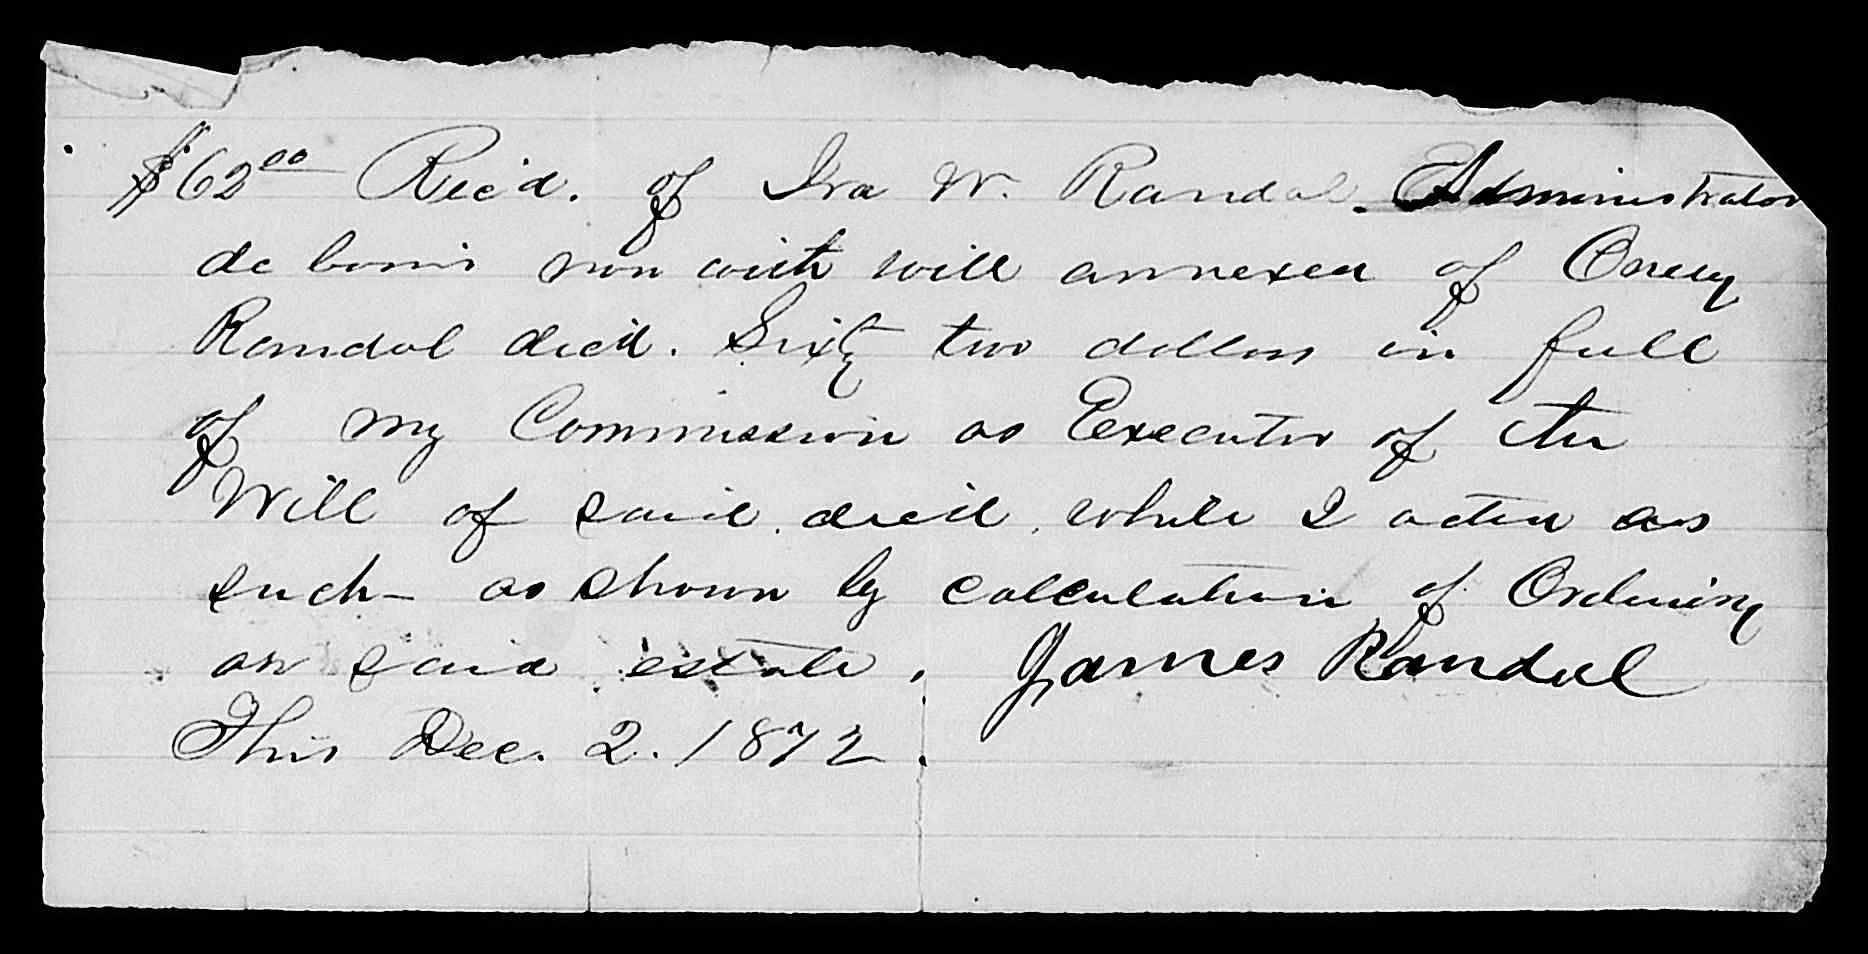 $62.00 Rec'd. of Ira W. Randal. Administrator
de bonis non with will annexed of Oney
Randal dec'd. Sixty two dollars in full
of my Commission as Executor of the
Will of said dec'd while I acted as
such as shown by calculation of Ordinary
on said estate. James Randal
This Dec. 2. 1872.